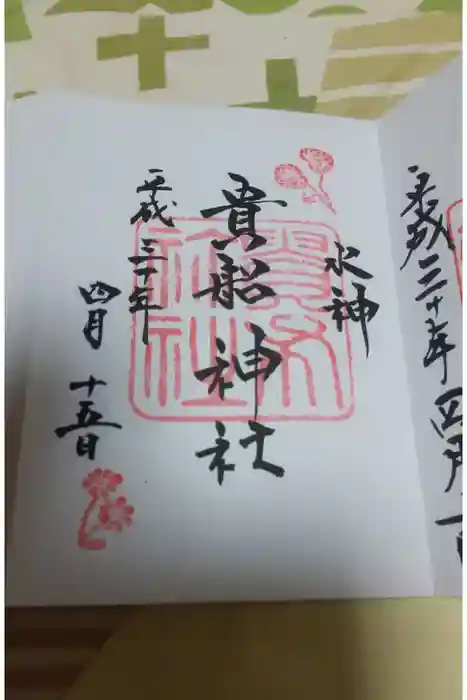 水神
貴船神社
平成三十年
四月十五日
平成三十年四月